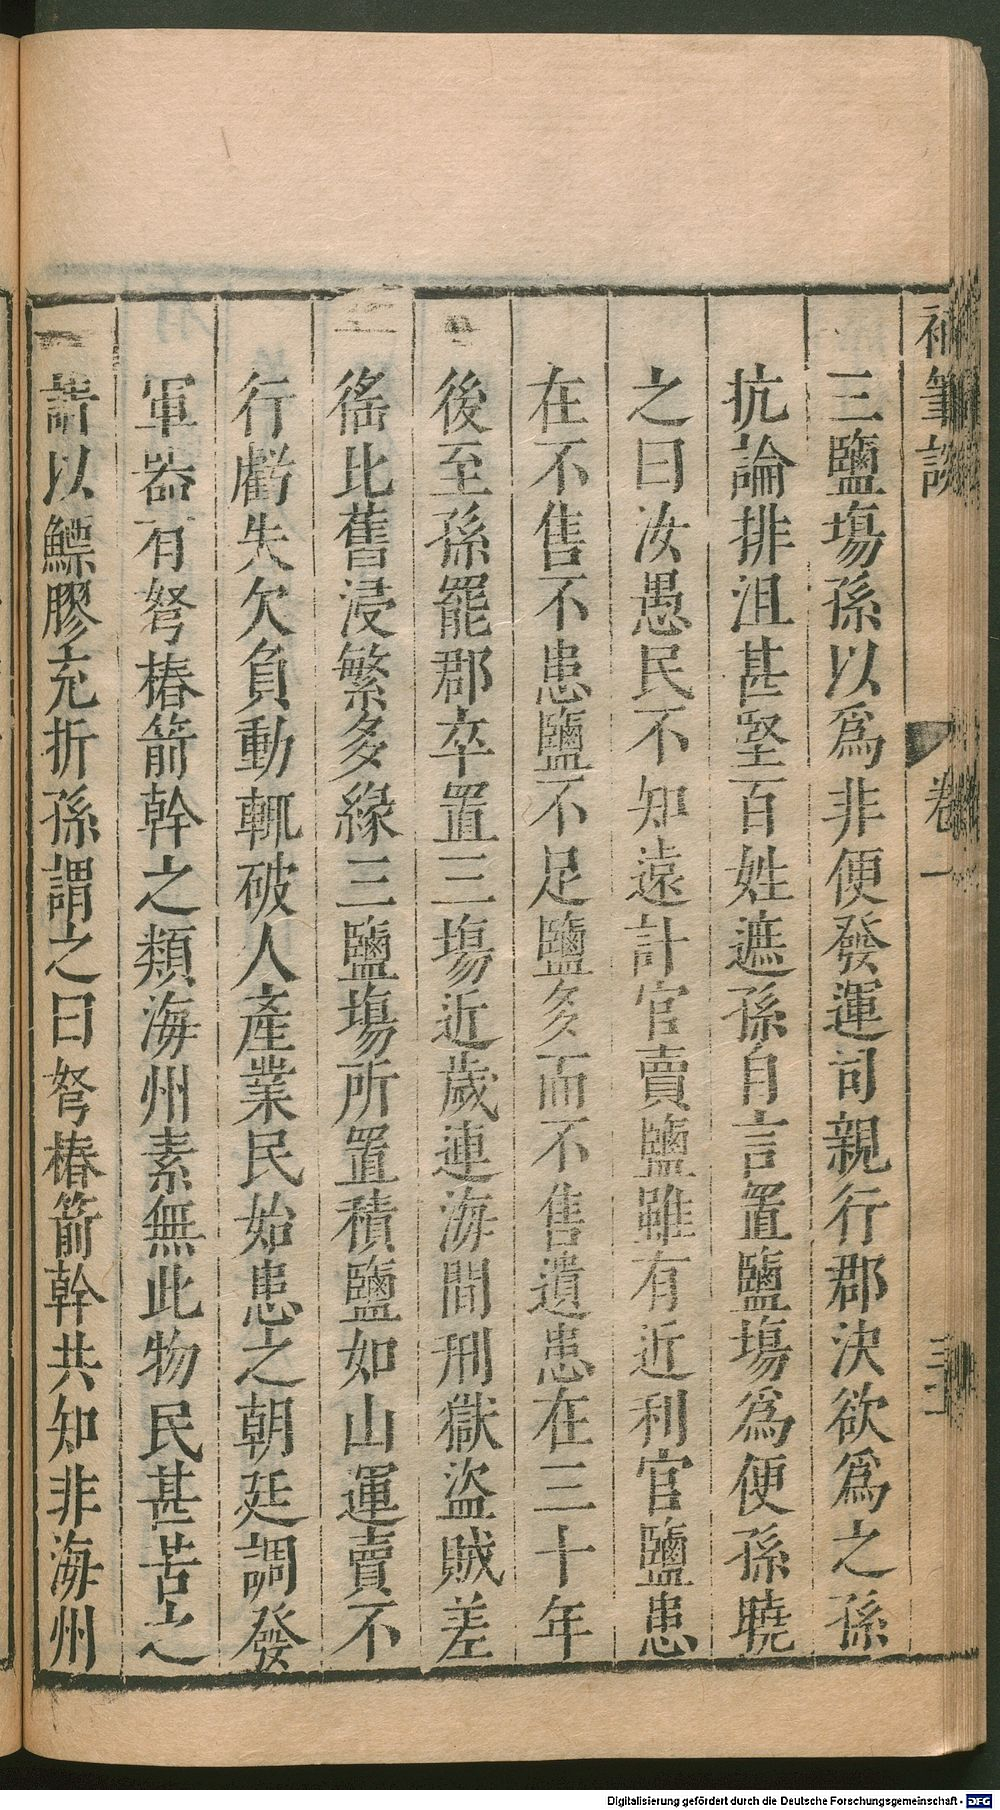 補筆談 卷一
三鹽塲孫以爲非便發運司親行郡決欲爲之孫
抗論排沮甚堅百姓遮孫自言置鹽塲爲便孫曉
之曰汝愚民不知遠計官賣鹽雖有近利官鹽患
在不售不患鹽不足鹽多而不售遺患在三十年
後至孫罷郡卒置三塲近歲連海間刑獄盜賊差
徭比舊浸繁多緣三鹽塲所置積鹽如山運賣不
行虧失欠負動輒破人產業民始患之朝廷調發
軍器有弩樁箭幹之類海州素無此物民甚苦之
請以鰾膠充折孫謂之曰弩樁箭幹共知非海州
Digitalisierung gefördert durch die Deutsche Forschungsgemeinschaft - DFG